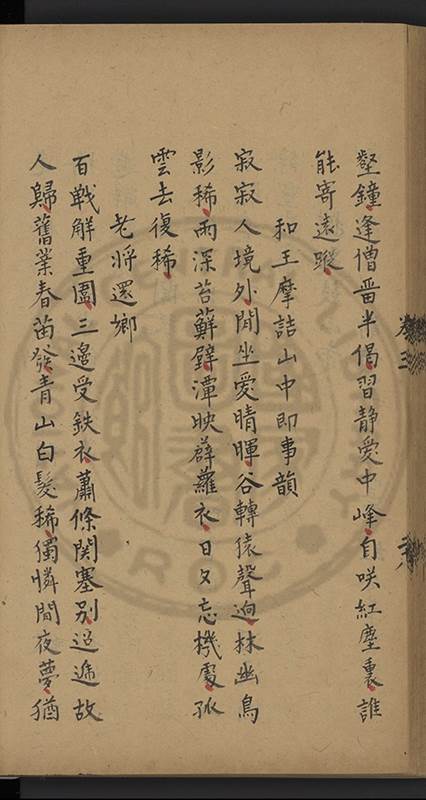 壑鐘逢僧畱半偈習静愛中峰自咲紅塵裏誰
能寄遠蹤
和王摩詰山中即事韻
寂寂人境外閒坐愛晴暉谷轉猿聲逈林幽鳥
影稀雨深苔蘚壁潭映薜蘿衣日夕忘機處孤
雲去復稀
老將還鄉
百戦解重圍三邊受鉄衣蕭條関塞别迢遞故
人歸舊業春苗發青山白髮稀獨憐閒夜夢猶
卷三